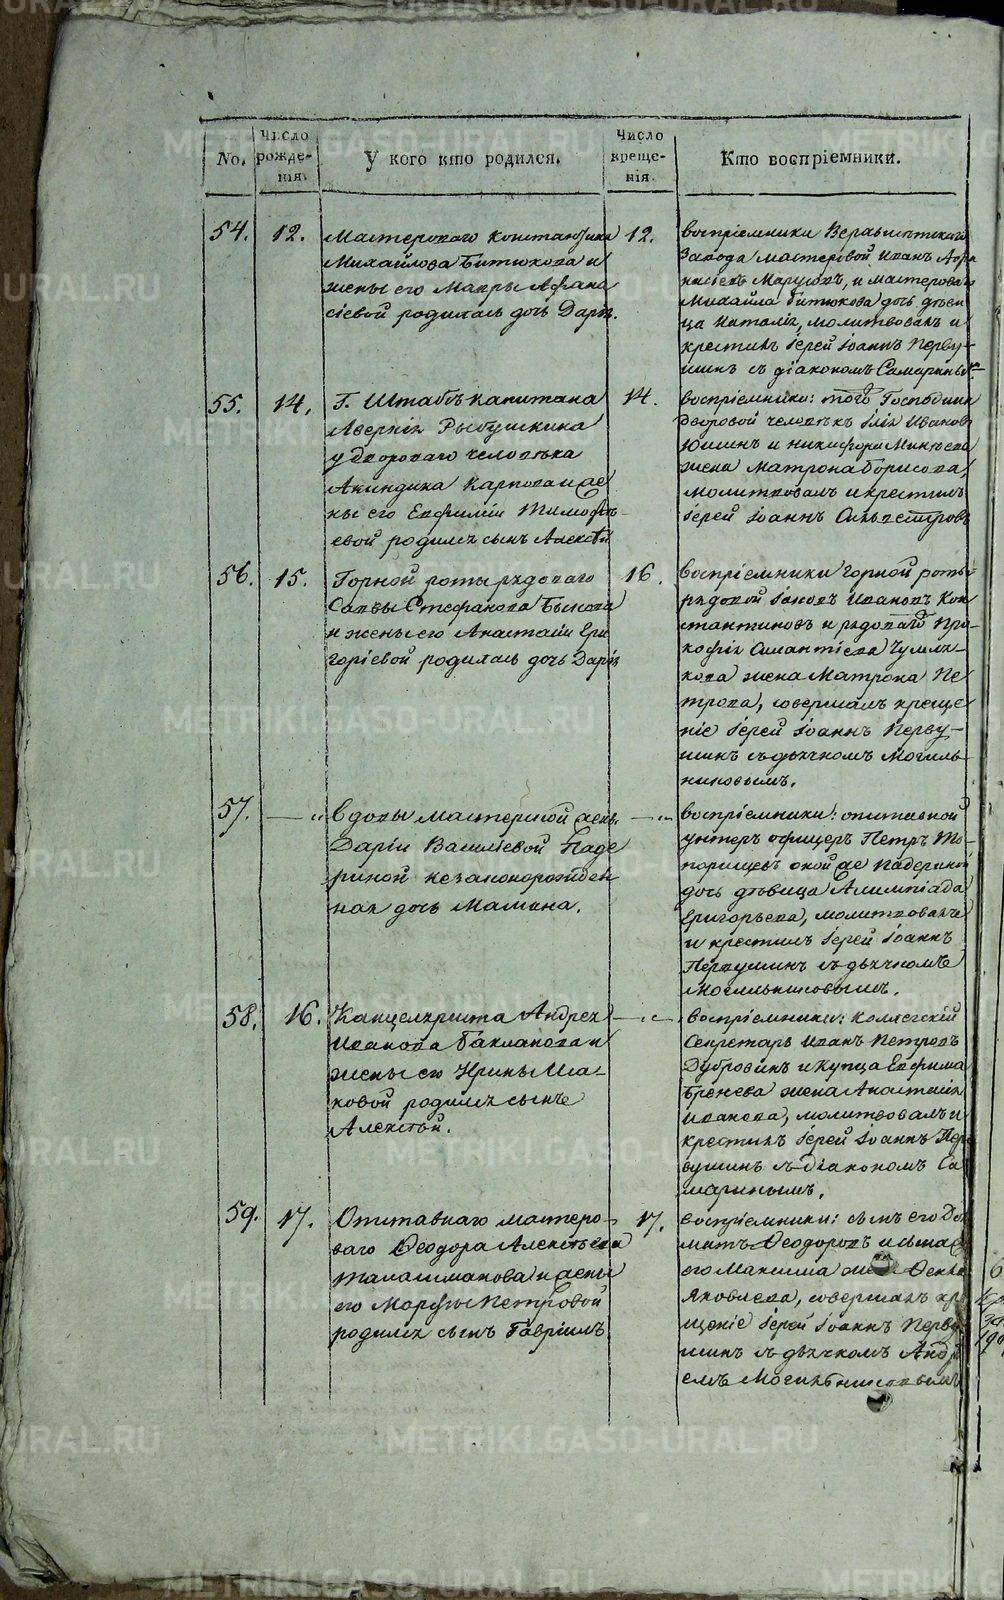 METRIKI.GASO-URAL.RU
No.
Число рожде-нія.
У кого кто родился.
Число креще-нія
Кто воспріемники.
54.
12.
Мастероваго Константина
Михайлова Битюкова и
жены его Мавры Афана
сіевой родилась дочь Дарія.
12.
воспріемники Верхъисетскаго
Завода мастеровой Иванъ
и мастероваго
Михайла Битюкова дочь дѣви
ца Наталія, молитвовалъ и
крестилъ Іерей Іоаннъ Перву-
шинъ съ діакономъ Самаринымъ
55.
14.
Г. Штабсъ капитана
Аверкія Рыбушкина
у двороваго человѣка
Акиндина Карпова и же
ны его Евфиміи Тимофѣ-
евой родился сынъ Алексѣй
14.
воспріемники: того Господина
дворовой человѣкъ Илія Ивановъ
Юшинъ и Никифора Минѣева
жена Матрона Борисова,
молитвовалъ и крестилъ
Іерей Іоаннъ Сильвестровъ
56.
15.
Горной роты рядоваго
Саввы Стефанова Быкова
и жены его Анастасіи Гри
горіевой родилась дочь Дарія
16.
воспріемники горной роты
рядовой Іаковъ Ивановъ Кон
стантиновъ и рядоваго Про-
кофія
жена Матрона Пе
трова, совершалъ креще
ніе Іерей Іоаннъ Перву-
шинъ съ дьячкомъ Могиль-
никовымъ.
57.
— "
вдовы мастерской жены
Даріи Василіевой Паде
риной незаконорожден
ная дочь Маміна.
— " —
воспріемники: отставной
унтеръ офицеръ Петръ То-
порищевъ и оной же Падериной
дочь дѣвица Алимпіада
Григорьева, молитвовалъ
и крестилъ Іерей Іоаннъ
Первушинъ съ дьячкомъ
Могильниковымъ.
58.
16.
Канцеляриста Андрея
Иванова Баклановa и
жены его Ирины Иса-
ковой родился сынъ
Алексѣй.
— " —
воспріемники: коллегскій
Секретарь Иванъ Петровъ
Дубровинъ и Купца Евфима
Бренева жена Анастасія
Иванова, молитвовалъ и
крестилъ Іерей Іоаннъ Пер
вушинъ съ діакономъ Са
маринымъ.
59.
17.
Отставнаго мастеро-
ваго Ѳеодора Алексѣева
Талашманова и жены
его Марѳы Петровой
родился сынъ Гавріилъ
17.
воспріемники: сынъ его До
матъ Ѳеодоровъ и сына
его Максима
Яковлева, совершалъ кре
щеніе Іерей Іоаннъ Перву
шинъ съ дьячкомъ Андре
емъ Могильниковымъ